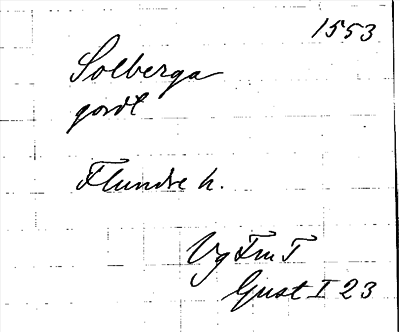 1553
Solberga
gord
Flundre h.
Vg Fm T
Gust I 23